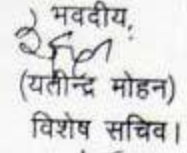 भवदीय,
(यतीन्द्र मोहन)
विशेष सचिव।